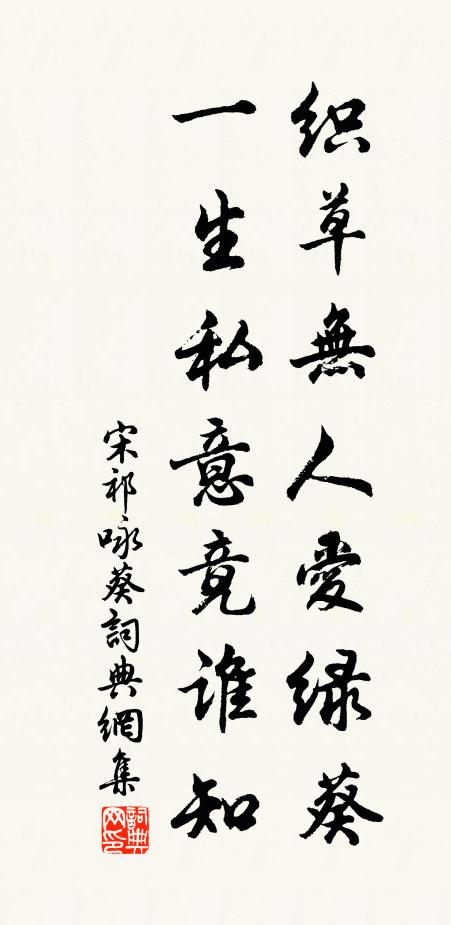 织草無人愛绿葵
一生私意竟谁知
宋祁咏葵詞典網集
詞典网印